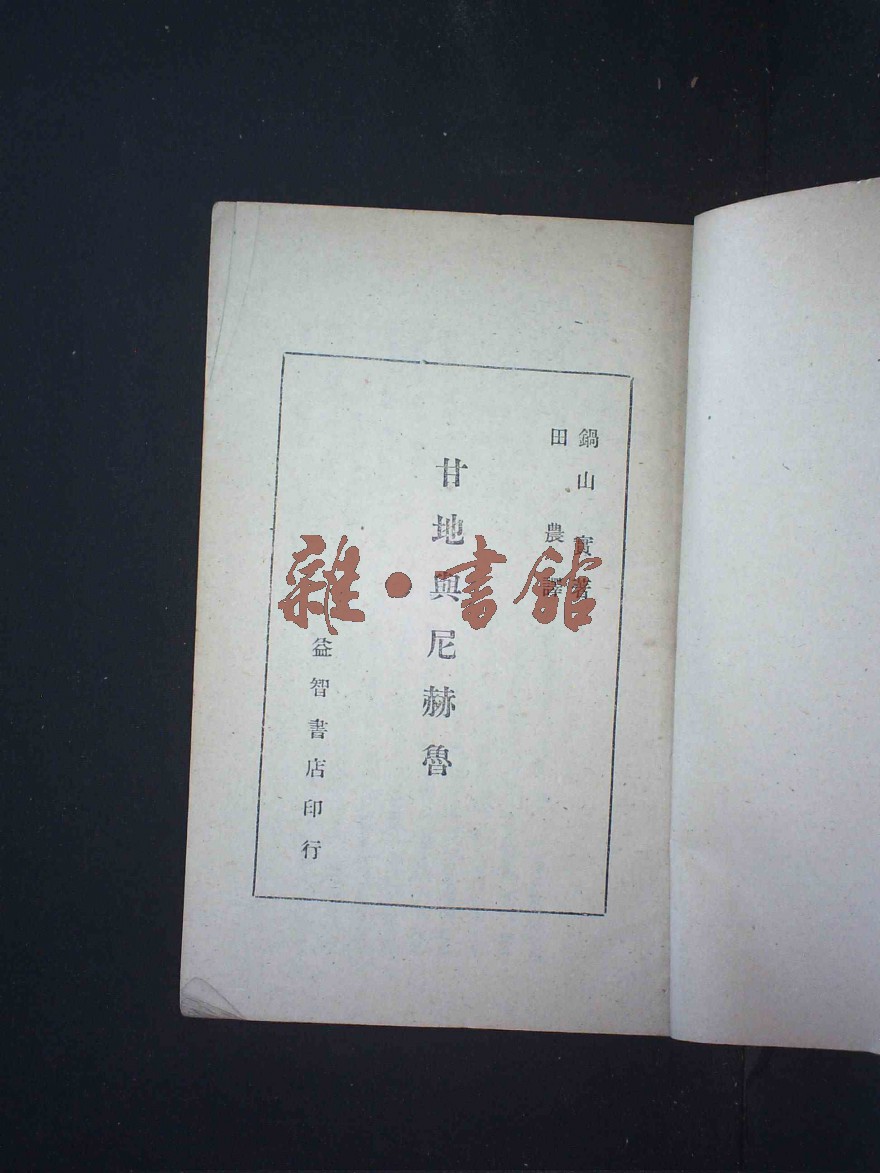 鍋山實著
田農譯
甘地與尼赫魯
益智書店印行
雜·書館